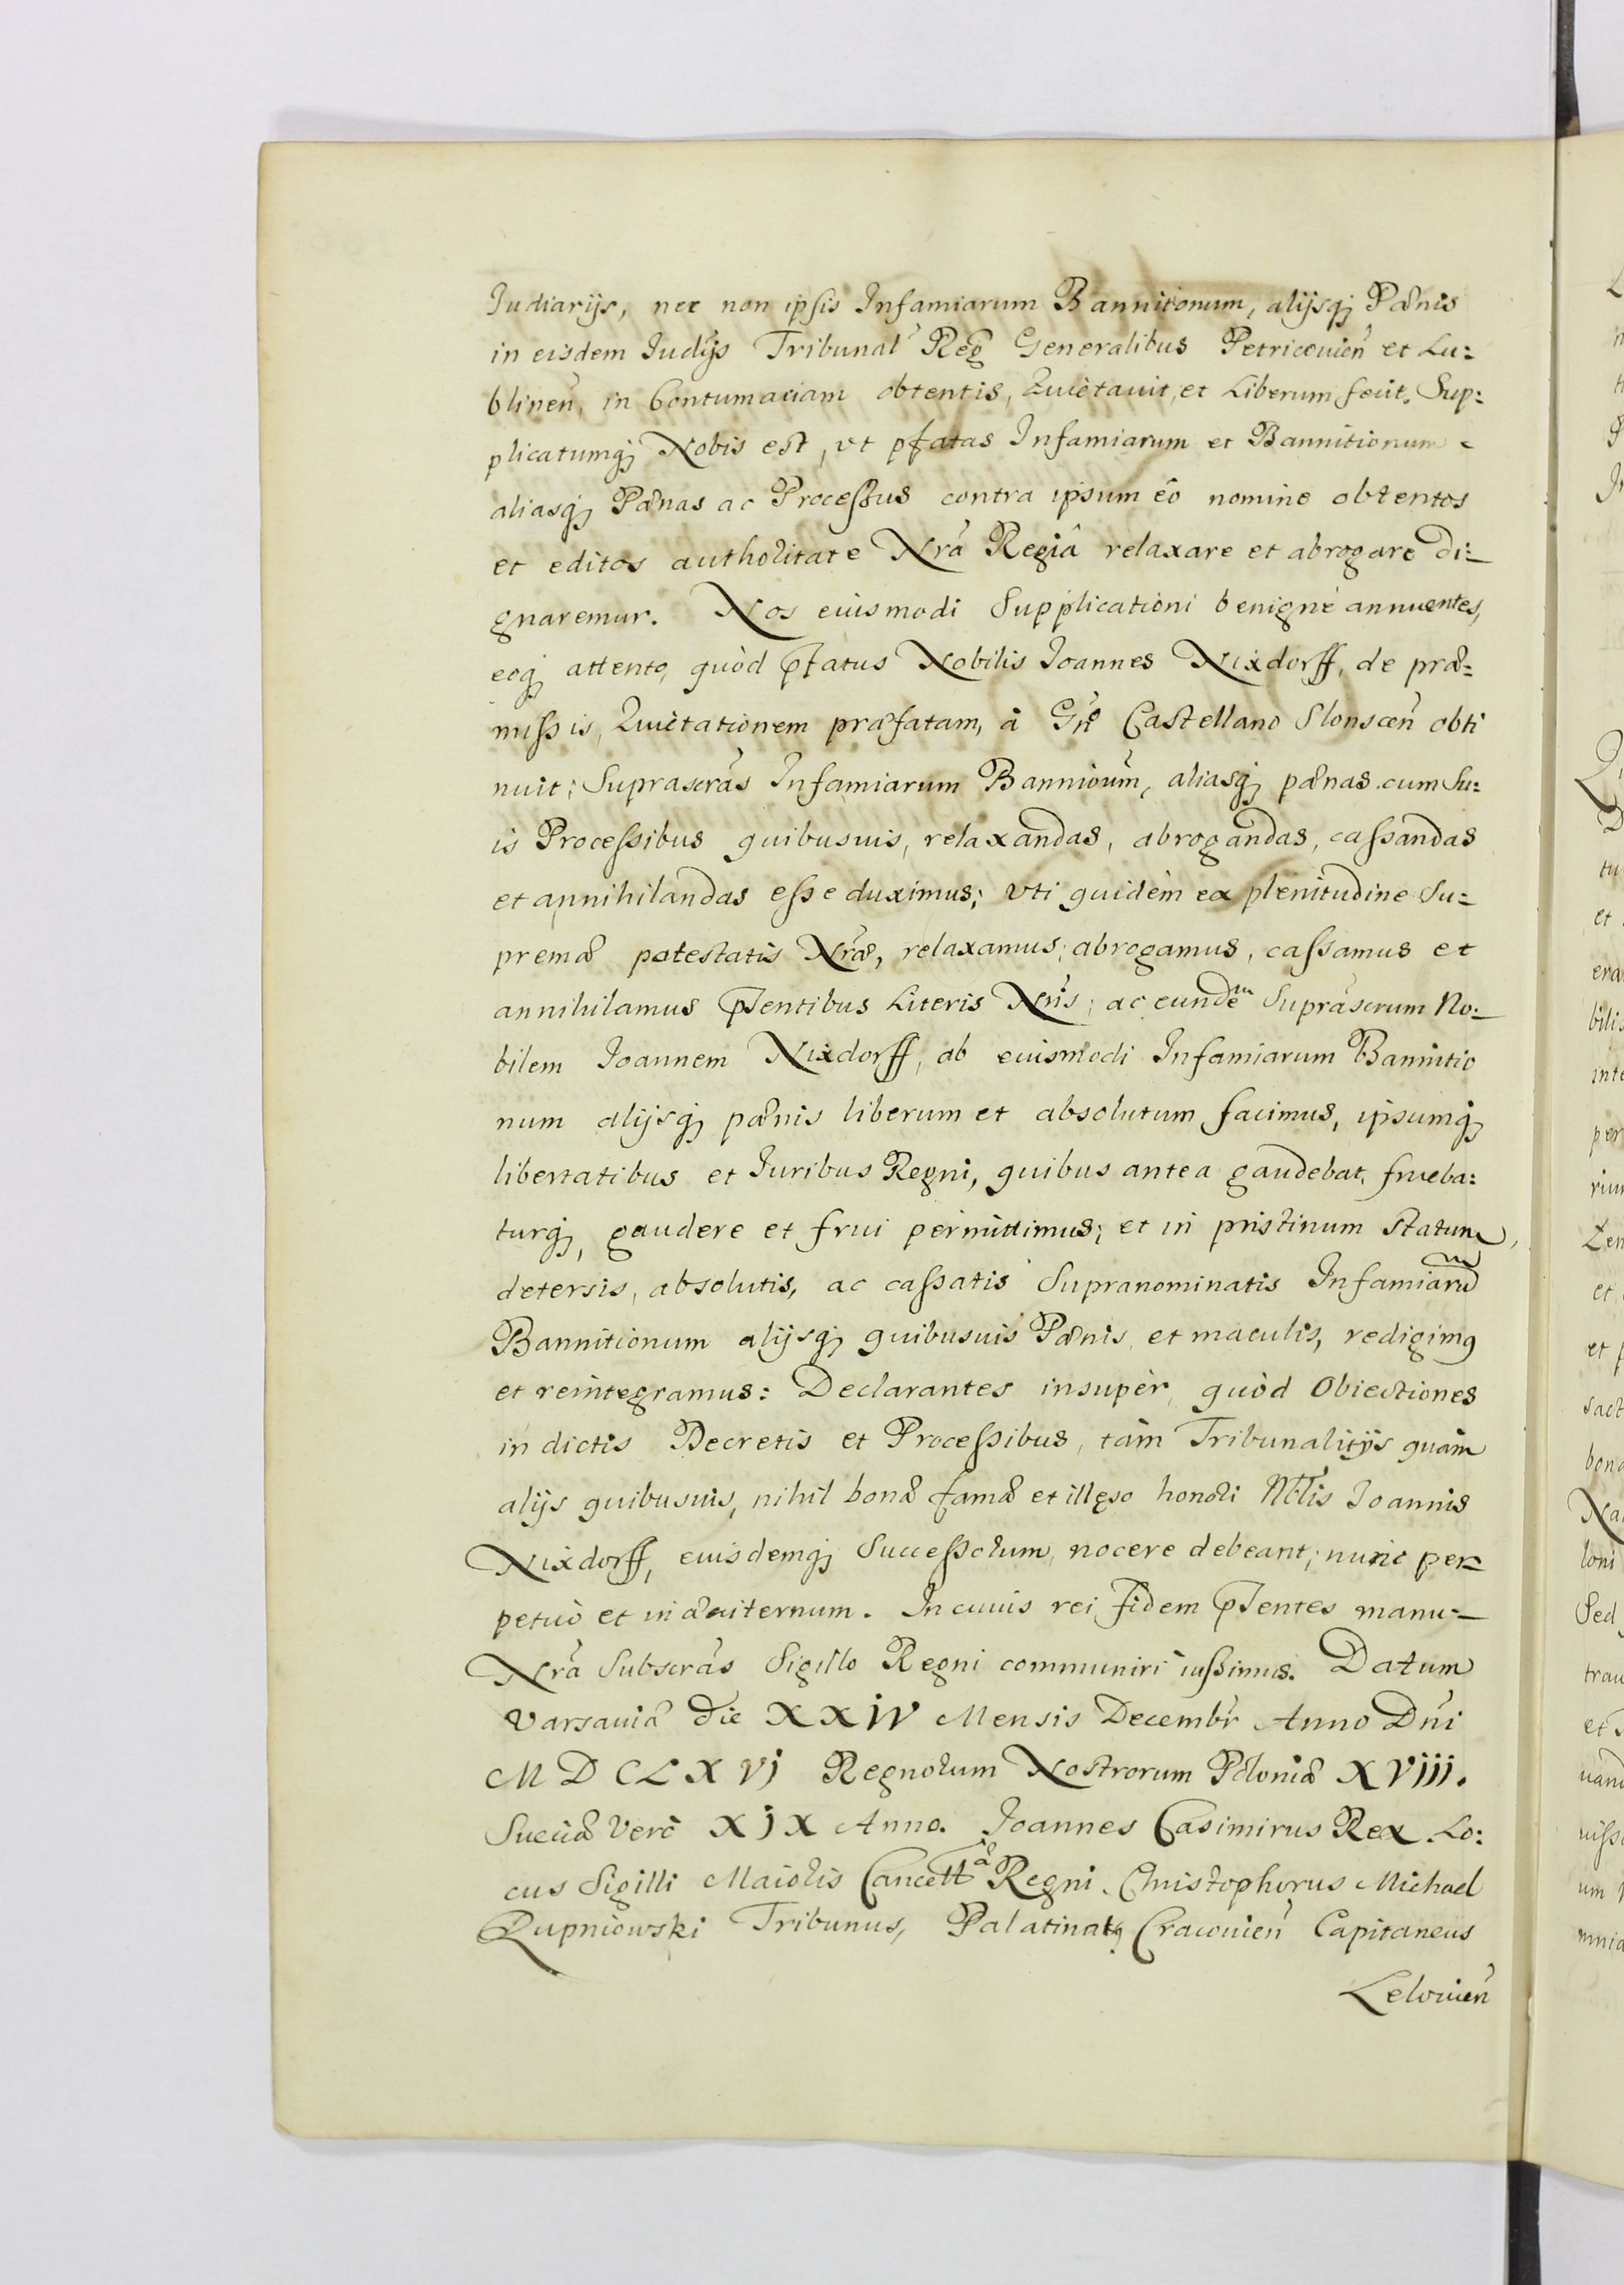 Judiarijs, nec non ipsis Infamiarum Bannitionum, alijsq; Pænis
in eisdem Judijs Tribunal Reg Generalibus Petricouien et Lu:
blinen, in Contumaciam obtentis, Quietauit, et Liberum fecit. Sup:
plicatumq; Nobis est, vt pfatas Infamiarum et Bannitionum
aliasq; Pænas ac Processus contra ipsum eô nomine obtentos
et editos authoritate Nrâ Regiâ relaxare et abrogare di:
gnaremur. Nos eiusmodi Supplicationi benignè annuentes,
eoq; attento, quòd pfatus Nobilis Joannes Nixdorff, de præ:
missis, Quietationem præfatam, à Gñe Castellano Slonscen obti
nuit; Suprascras Infamiarum Bannioum, aliasq; pænas cum Su:
is Processibus quibusuis, relaxandas, abrogandas, cassandas
et annihilandas esse duximus; vti quidèm ex plenitudine Su:
premæ potestatis Nræ, relaxamus, abrogamus, cassamus et
annihilamus pñtentibus Literis Nris; ac eundem Suprascrum No:
bilem Joannem Nixdorff, ab eiusmodi Infamiarum Bannitio
num alijsq; pænis liberum et absolutum facimus, ipsumq;
libertatibus et Juribus Regni, quibus antea gaudebat, frueba:
turq; gaudere et frui permittimus; et in pristinum statum,
detersis, absolutis, ac cassatis Supranominatis Infamiarum
Bannitionum alijsq; quibusuis Pænis et maculis, redigimus
et reintegramus: Declarantes insupèr, quòd Obiectiones
in dictis Decretis et Processibus, tàm Tribunalitijs quàm
alijs quibusuis, nihil bonæ famæ et illęso honori Nbilis Joannis
Nixdorff, eiusdemq; Successorum, nocere debeant; nunc per:
petuò et in æuiternum. In cuius rei fidem pñtentes manu
Nrâ Subscras Sigillo Regni communiri iussimus. Datum
Varsauiæ die XXIV Mensis Decembr Anno Dñi
MDCLXVI Regnorum Nostrorum Poloniæ XVIII.
Sueciæ Verò XIX Anno. Joannes Casimirus Rex. Lo:
cus Sigilli Maioris Cancellæ Regni. Christophorus Michael
Rupniowski Tribunus, Palatinatus Cracouien Capitaneus
Lelouien